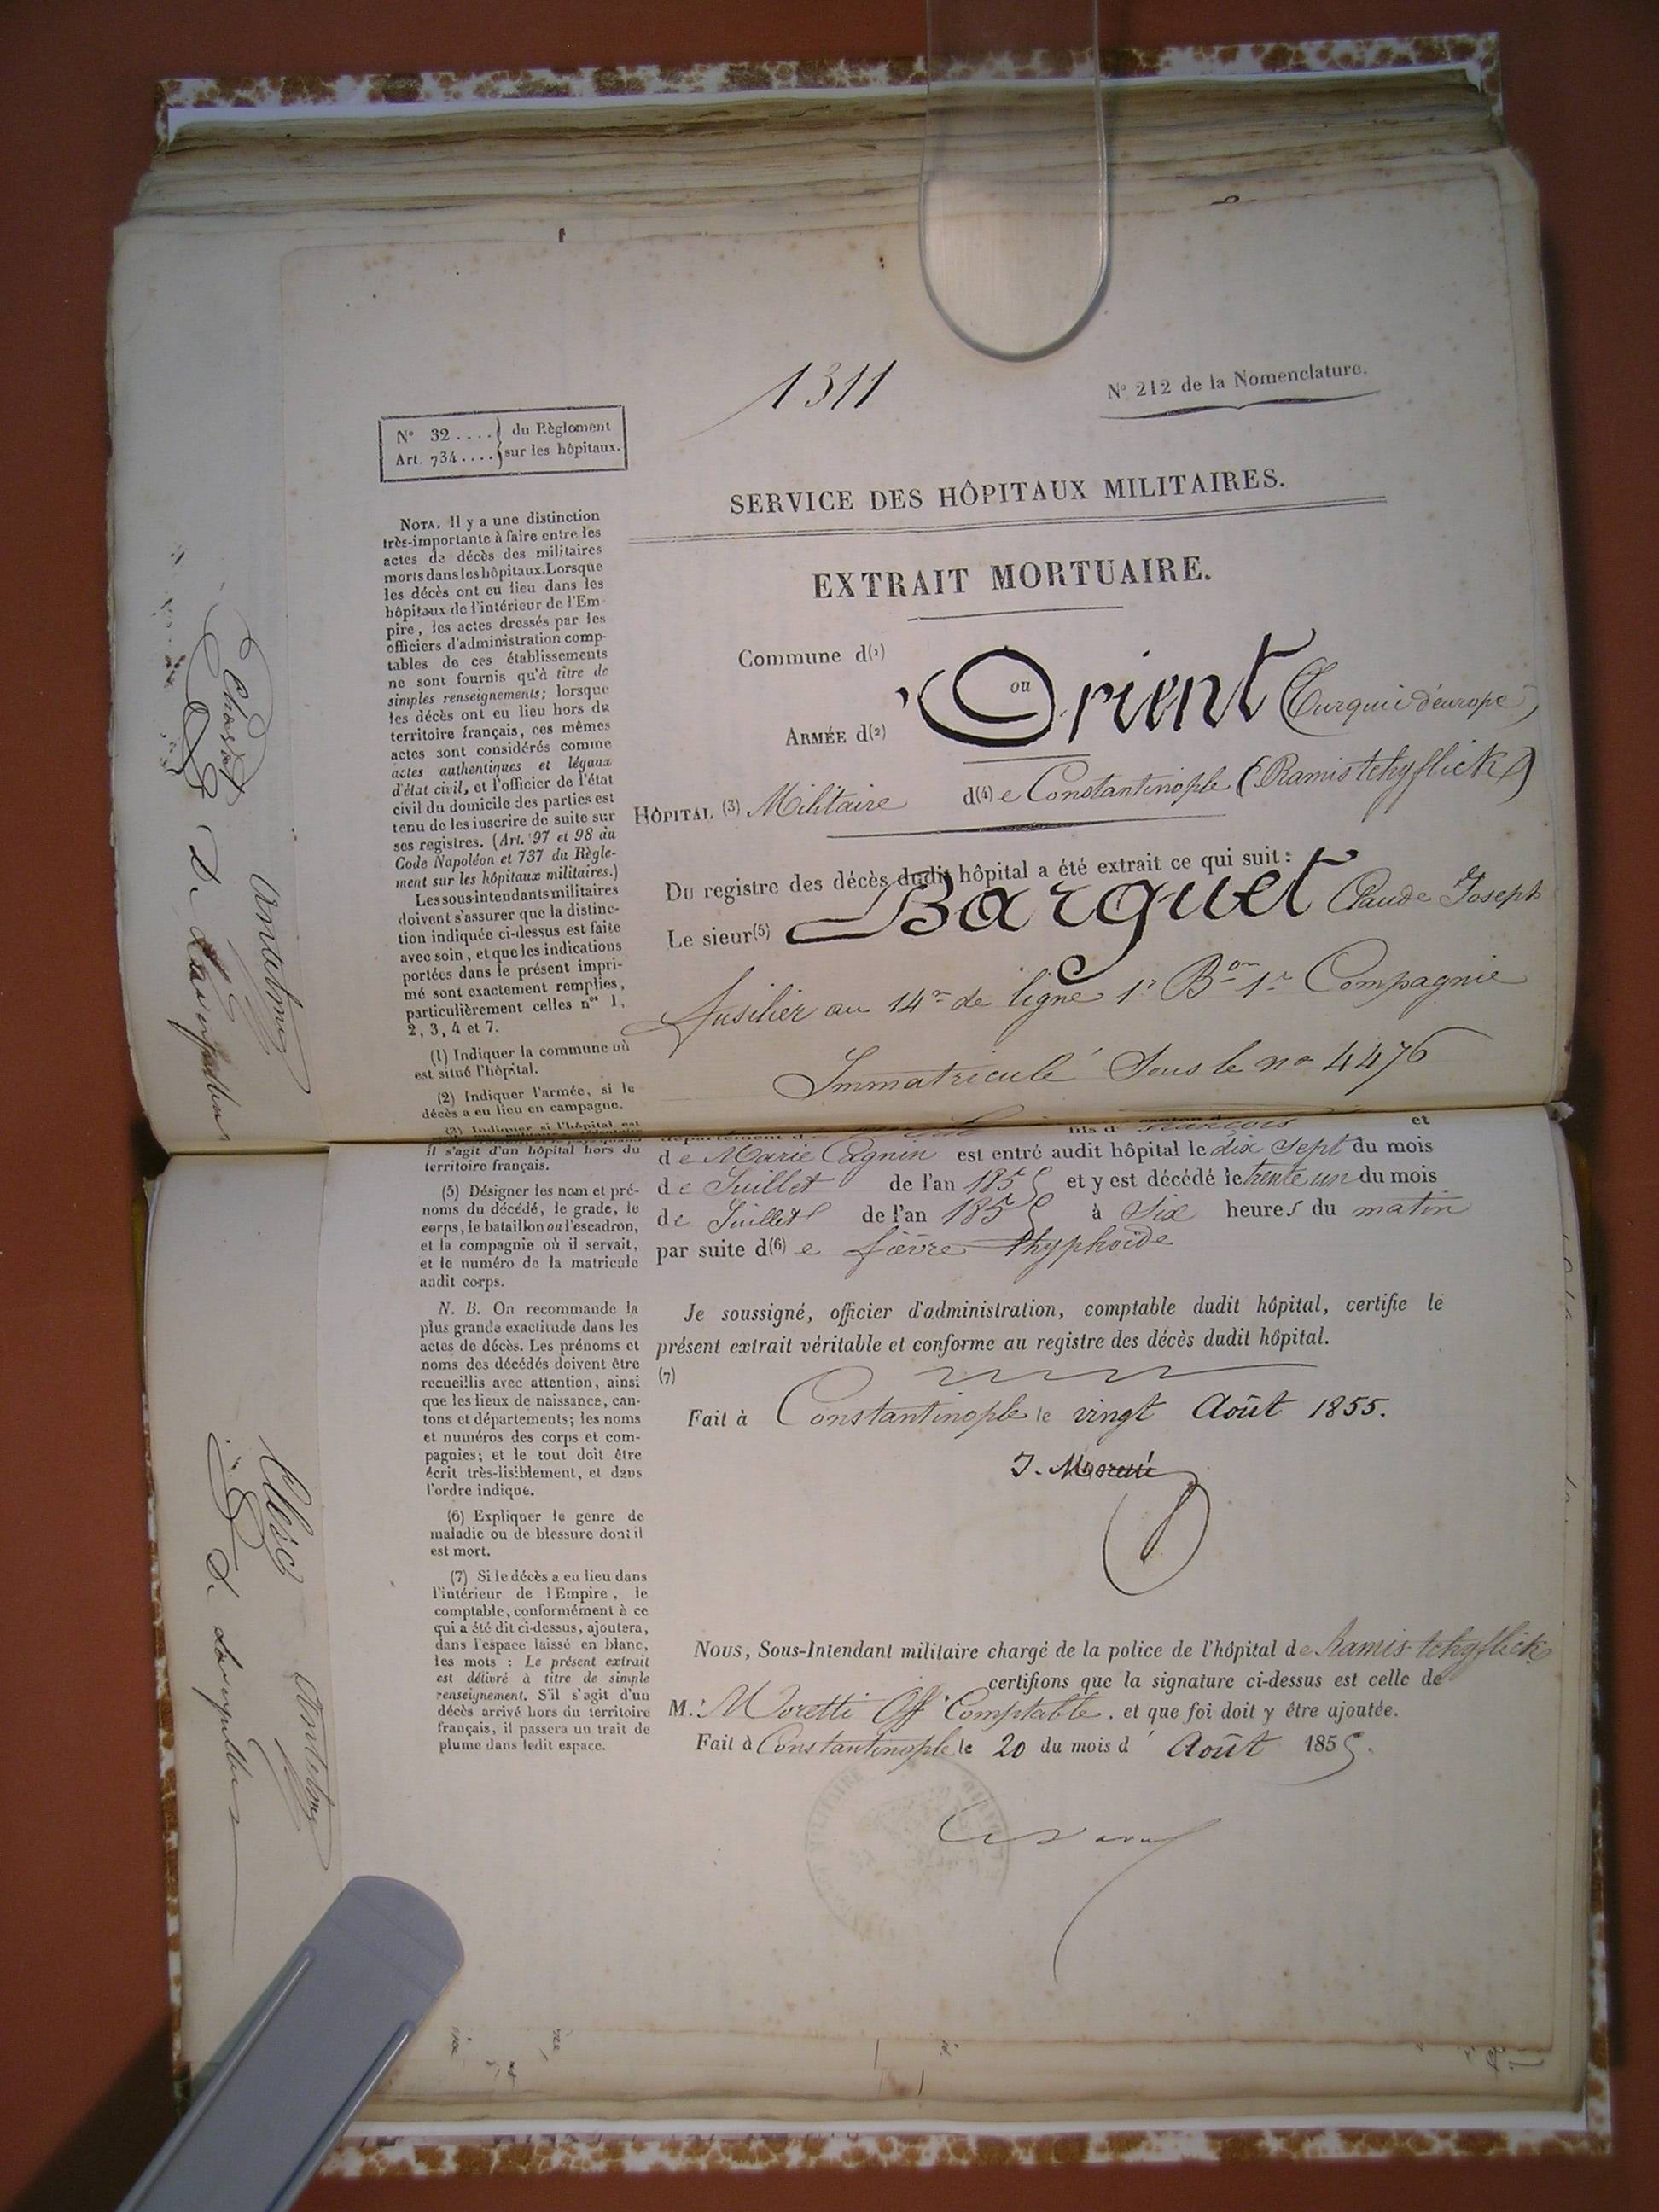 1311
N° 212 de la Nomenclature.
N° 32.... du Règloment
Art. 734.... sur les hôpitaux.
SERVICE DES HÔPITAUX MILITAIRES.
EXTRAIT MORTUAIRE.
Commune d(1)
ou
ARMÉE d(2) 'Orient (Turquie d'europe)
HÔPITAL (3) Militaire d(4)e Constantinople (Ramistchyflick)
Du registre des décès dudit hôpital a été extrait ce qui suit :
Le sieur(5) Barguet Claude Joseph
fusilier au 14me de ligne 1r Bon 1re Compagnie
Immatriculé Sous le no 4476
fils d François et
de Marie Cagnin est entré audit hôpital le dix Sept du mois
de Juillet de l'an 1855 et y est décédé le trente un du mois
de Juillet de l'an 1855 à Six heures du matin
par suite d(6) e fièvre thyphoïde
Je soussigné, officier d'administration, comptable dudit hôpital, certifie le
présent extrait véritable et conforme au registre des décès dudit hôpital.
(7)
Fait à Constantinople le vingt Août 1855.
J. Moretti
Nous, Sous-Intendant militaire chargé de la police de l'hôpital de Ramis tchyflick
certifions que la signature ci-dessus est celle de
M. Moretti Off Comptable, et que foi doit y être ajoutée.
Fait à Constantinople le 20 du mois d' Août 1855.
NOTA. Il y a une distinction
très-importante à faire entre les
actes de décès des militaires
morts dans les hôpitaux. Lorsque
les décès ont eu lieu dans les
hôpitaux de l'intérieur de l'Em-
pire, les actes dressés par les
officiers d'administration comp-
tables de ces établissements
ne sont fournis qu'à titre de
simples renseignements; lorsque
les décès ont eu lieu hors du
territoire français, ces mêmes
actes sont considérés comme
actes authentiques et légaux
d'état civil, et l'officier de l'état
civil du domicile des parties est
tenu de les inscrire de suite sur
ses registres. (Art. 97 et 98 du
Code Napoléon et 737 du Règle-
ment sur les hôpitaux militaires.)
Les sous-intendants militaires
doivent s'assurer que la distinc-
tion indiquée ci-dessus est faite
avec soin, et que les indications
portées dans le présent impri-
mé sont exactement remplies,
particulièrement celles nos 1,
2, 3, 4 et 7.
(1) Indiquer la commune où
est situé l'hôpital.
(2) Indiquer l'armée, si le
décès a eu lieu en campagne.
(3) Indiquer si l'hôpital est
il s'agit d'un hôpital hors du
territoire français.
(5) Désigner les nom et pré-
noms du décédé, le grade, le
corps, le bataillon ou l'escadron,
et la compagnie où il servait,
et le numéro de la matricule
audit corps.
N. B. On recommande la
plus grande exactitude dans les
actes de décès. Les prénoms et
noms des décédés doivent être
recueillis avec attention, ainsi
que les lieux de naissance, can-
tons et départements; les noms
et numéros des corps et com-
pagnies; et le tout doit être
écrit très-lisiblement, et dans
l'ordre indiqué.
(6) Expliquer le genre de
maladie ou de blessure dont il
est mort.
(7) Si le décès a eu lieu dans
l'intérieur de l'Empire, le
comptable, conformément à ce
qui a été dit ci-dessus, ajoutera,
dans l'espace laissé en blanc,
les mots : Le présent extrait
est délivré à titre de simple
renseignement. S'il s'agit d'un
décès arrivé hors du territoire
français, il passera un trait de
plume dans ledit espace.